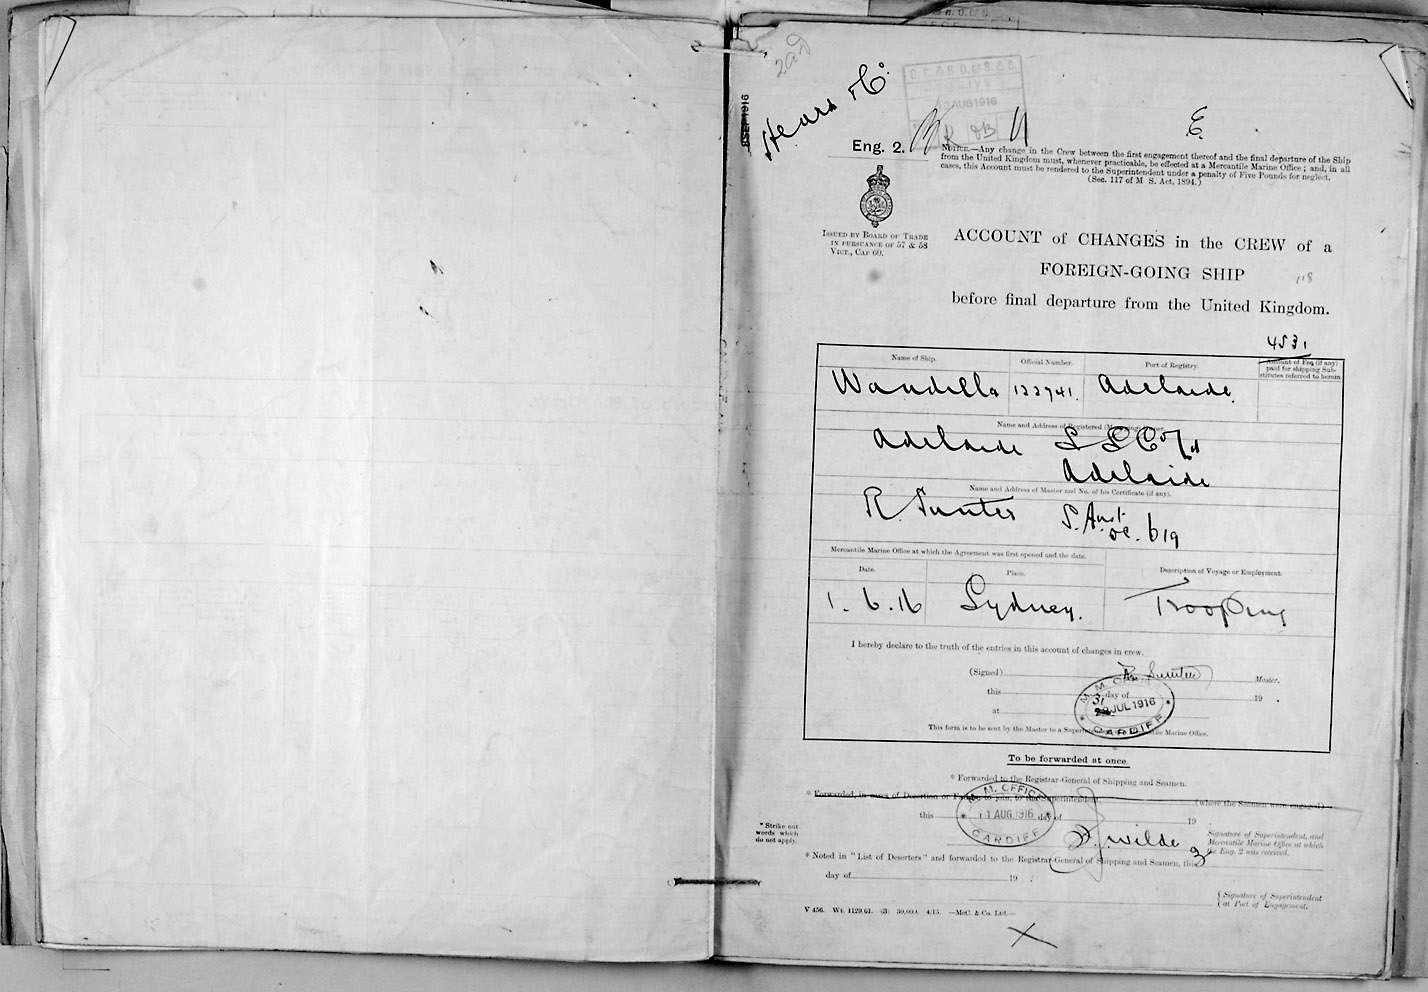 2aD
8 SEP 1916
Hears & Co.
G. R. & R. O. of S. & S.
2 AUG 1916
E.
Eng. 2.
NOTICE.—Any change in the Crew between the first engagement thereof and the final departure of the Ship
from the United Kingdom must, whenever practicable, be effected at a Mercantile Marine Office; and, in all
cases, this Account must be rendered to the Superintendent under a penalty of Five Pounds for neglect.
(Sec. 117 of M S. Act, 1894.)
ISSUED BY BOARD OF TRADE
IN PURSUANCE OF 57 & 58
VICT., CAP 60.
ACCOUNT of CHANGES in the CREW of a
FOREIGN-GOING SHIP
before final departure from the United Kingdom.
118
4531
Name of Ship.
Official Number.
Port of Registry.
Amount of Fee (if any)
paid for shipping Sub-
stitutes referred to herein.
Wandilla 122741. Adelaide.
Name and Address of Registered
Adelaide S S Co Ltd
Adelaide
Name and Address of Master and No. of his Certificate (if any).
R. Sunter S. Aust.
oc. 619
Mercantile Marine Office at which the Agreement was first opened and the date.
Date.
Place.
Description of Voyage or Employment.
1.6.16 Sydney. Trooping
I hereby declare to the truth of the entries in this account of changes in crew.
(Signed) R. Sunter Master.
this 31 day of 19 .
at
M. M. OFFICE
31 JUL 1916
CARDIFF
This form is to be sent by the Master to a Superintendent of a Mercantile Marine Office.
To be forwarded at once.
* Forwarded to the Registrar-General of Shipping and Seamen.
* Forwarded, in cases of Desertion or Failure to join, to the Superintendent (where the Seamen were engaged)
this day of 19
M. M. OFFICE
11 AUG 1916
CARDIFF
* Strike out
words which
do not apply.
Wilde
Signature of Superintendent, and
Mercantile Marine Office at which
the Eng. 2 was received.
* Noted in "List of Deserters" and forwarded to the Registrar-General of Shipping and Seamen, this
day of 19 .
Signature of Superintendent
at Port of Engagement.
V 456. Wt. 1129,61. (3) 30,000. 4/15. —McC. & Co. Ltd.—